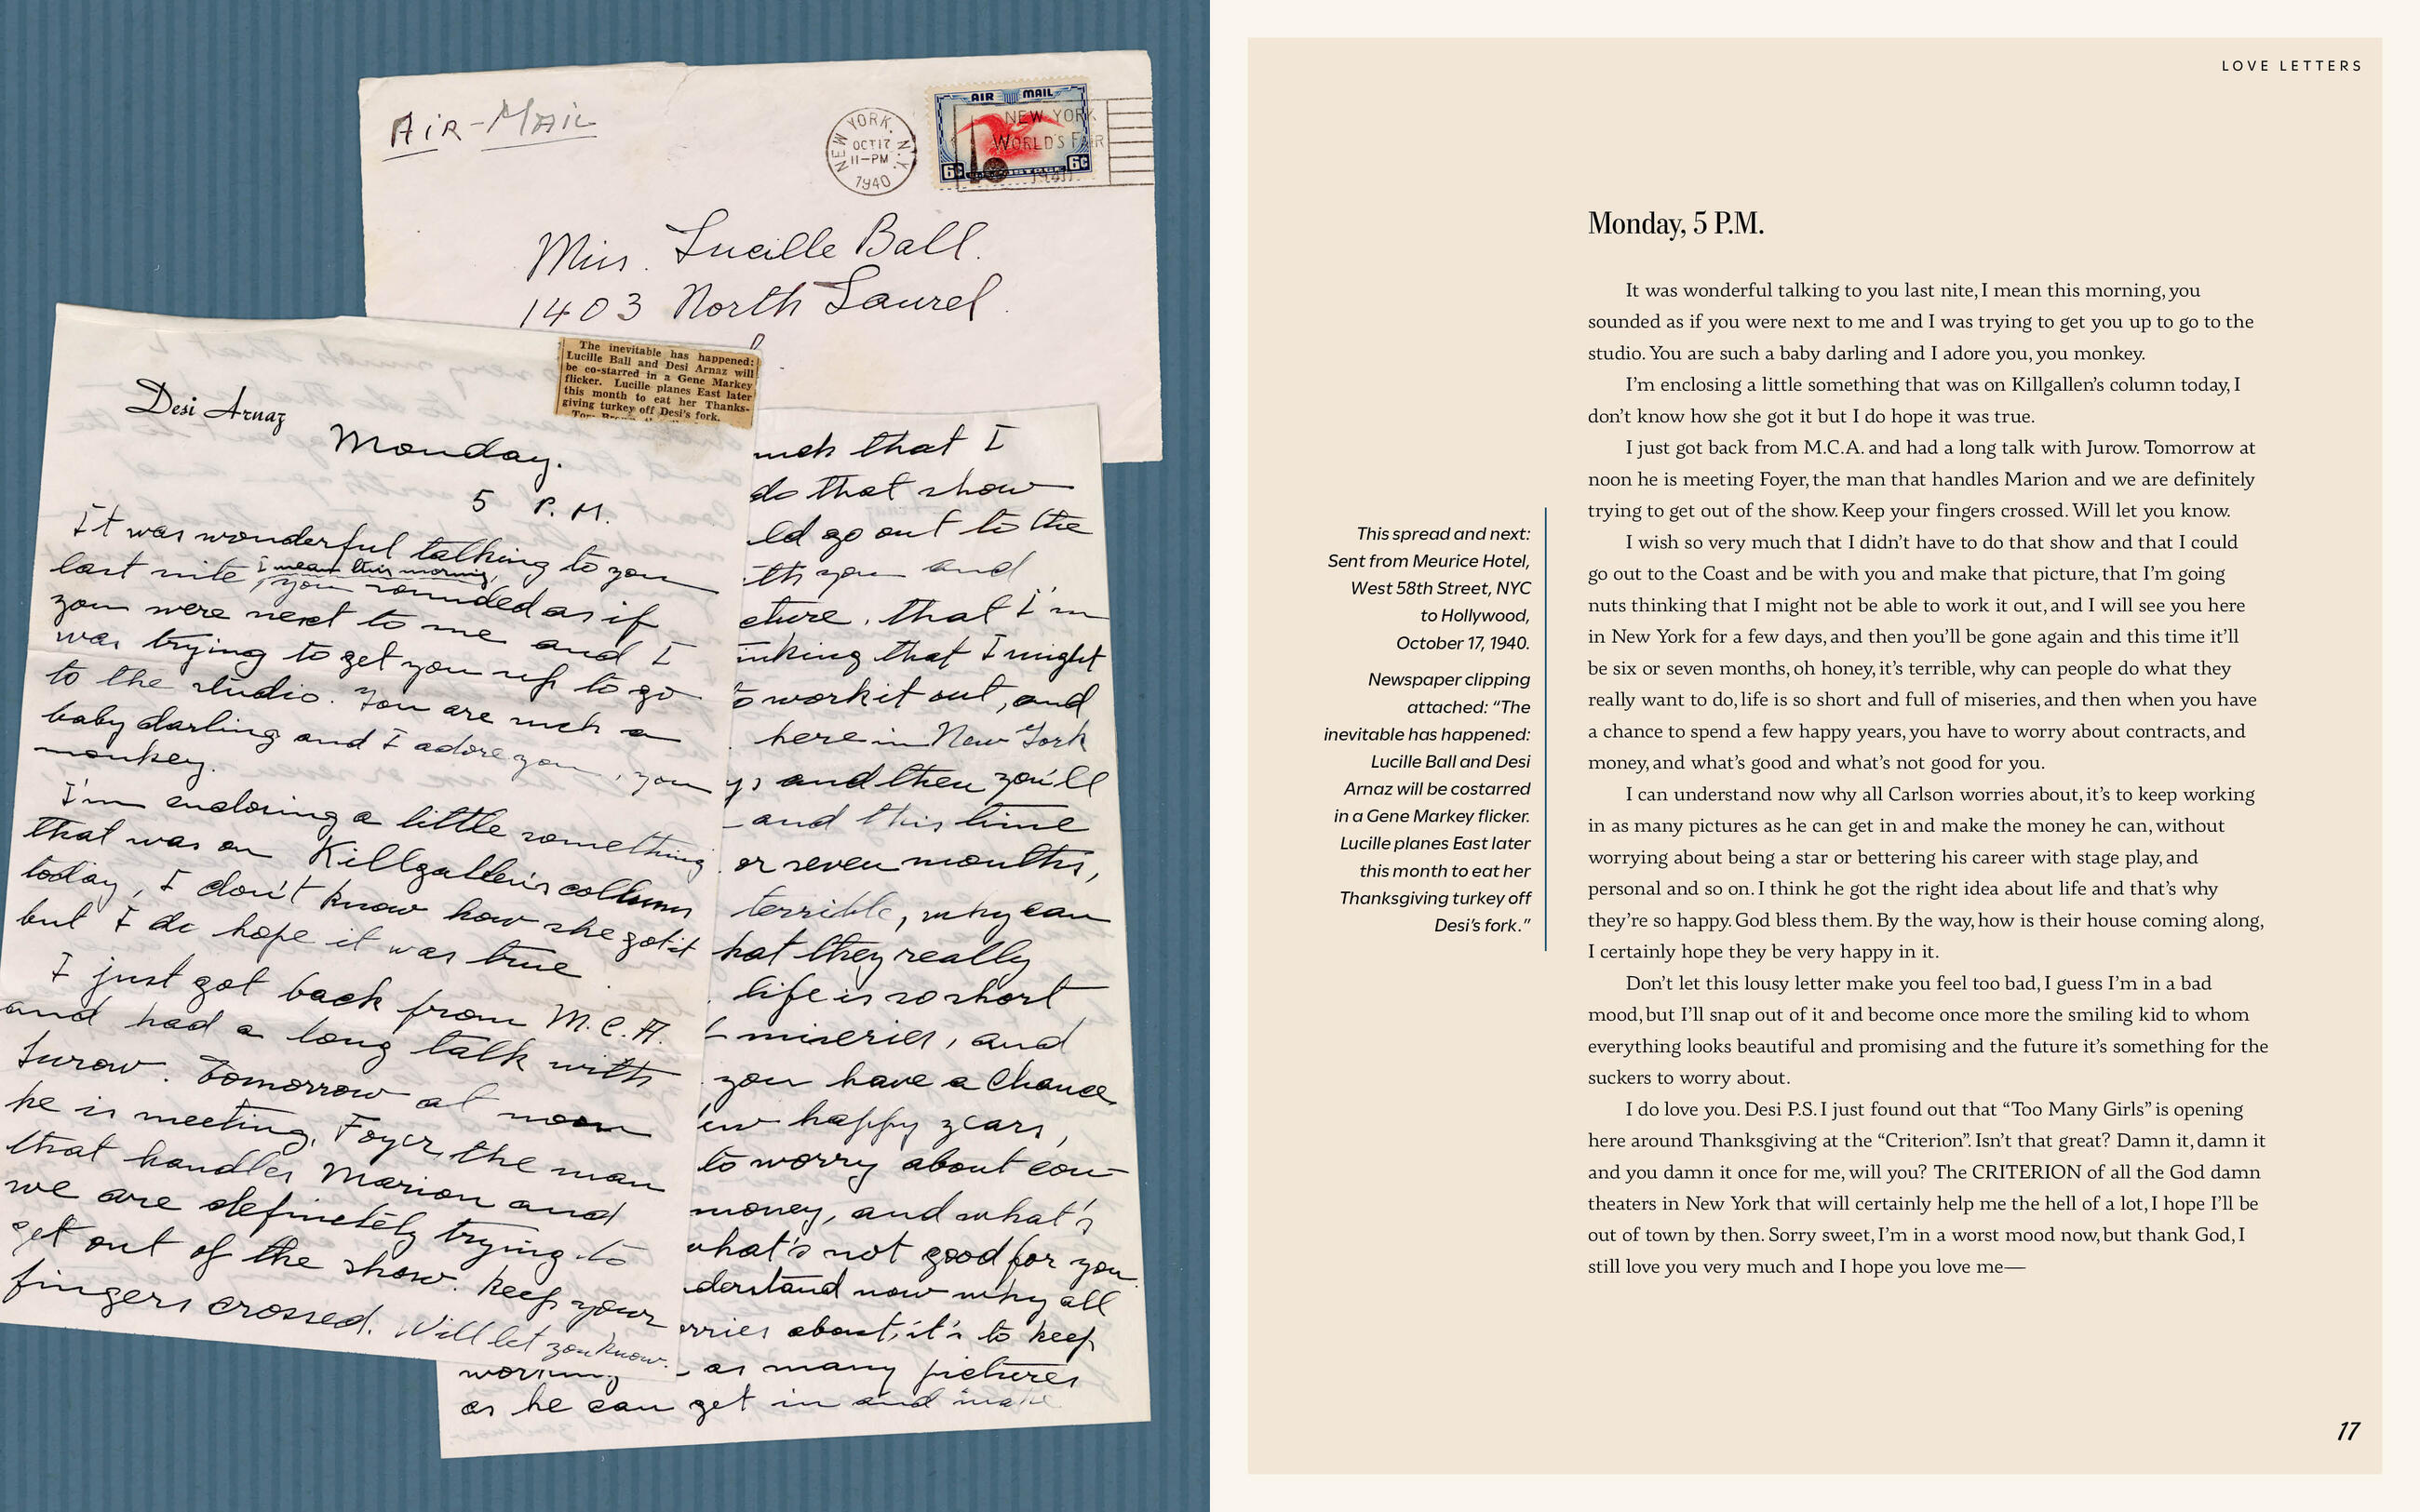 AIR-MAIL
NEW YORK, N.Y.
OCT 17
11-PM
1940
AIR MAIL
NEW YORK
WORLD'S FAIR
1940
6¢ 6¢
Miss. Lucille Ball.
1403 North Laurel.
The inevitable has happened:
Lucille Ball and Desi Arnaz will
be co-starred in a Gene Markey
flicker. Lucille planes East later
this month to eat her Thanks-
giving turkey off Desi's fork.
Desi Arnaz
Monday.
5 P.M.
It was wonderful talking to you
last nite, I mean this morning, you sounded as if
you were next to me and I
was trying to get you up to go
to the studio. You are such a
baby darling and I adore you, you
monkey.
I'm enclosing a little something
that was on Killgallen's collumn
today, I don't know how she got it
but I do hope it was true
I just got back from M.C.A.
and had a long talk with
Jurow. Tomorrow at noon
he is meeting, Foyer, the man
that handles Marion and
we are definetely trying to
get out of the show. Keep your
fingers crossed. Will let you know.
such that I
do that show
ld go out to the
ith you and
cture, that I'm
inking that I might
to work it out, and
here in New York
ys and then you'll
and this time
or seven months,
terrible, why can
hat they really
life is so short
miseries, and
you have a chance
ew happy years,
to worry about con-
money, and what's
what's not good for you.
derstand now why all
orries about, it's to keep
working as many pictures
as he can get in and make
LOVE LETTERS
Monday, 5 P.M.
It was wonderful talking to you last nite, I mean this morning, you
sounded as if you were next to me and I was trying to get you up to go to the
studio. You are such a baby darling and I adore you, you monkey.
I'm enclosing a little something that was on Killgallen's column today, I
don't know how she got it but I do hope it was true.
I just got back from M.C.A. and had a long talk with Jurow. Tomorrow at
noon he is meeting Foyer, the man that handles Marion and we are definitely
trying to get out of the show. Keep your fingers crossed. Will let you know.
I wish so very much that I didn't have to do that show and that I could
go out to the Coast and be with you and make that picture, that I'm going
nuts thinking that I might not be able to work it out, and I will see you here
in New York for a few days, and then you'll be gone again and this time it'll
be six or seven months, oh honey, it's terrible, why can people do what they
really want to do, life is so short and full of miseries, and then when you have
a chance to spend a few happy years, you have to worry about contracts, and
money, and what's good and what's not good for you.
I can understand now why all Carlson worries about, it's to keep working
in as many pictures as he can get in and make the money he can, without
worrying about being a star or bettering his career with stage play, and
personal and so on. I think he got the right idea about life and that's why
they're so happy. God bless them. By the way, how is their house coming along,
I certainly hope they be very happy in it.
Don't let this lousy letter make you feel too bad, I guess I'm in a bad
mood, but I'll snap out of it and become once more the smiling kid to whom
everything looks beautiful and promising and the future it's something for the
suckers to worry about.
I do love you. Desi P.S. I just found out that “Too Many Girls” is opening
here around Thanksgiving at the “Criterion”. Isn't that great? Damn it, damn it
and you damn it once for me, will you? The CRITERION of all the God damn
theaters in New York that will certainly help me the hell of a lot, I hope I'll be
out of town by then. Sorry sweet, I'm in a worst mood now, but thank God, I
still love you very much and I hope you love me—
This spread and next:
Sent from Meurice Hotel,
West 58th Street, NYC
to Hollywood,
October 17, 1940.
Newspaper clipping
attached: “The
inevitable has happened:
Lucille Ball and Desi
Arnaz will be costarred
in a Gene Markey flicker.
Lucille planes East later
this month to eat her
Thanksgiving turkey off
Desi's fork.”
17